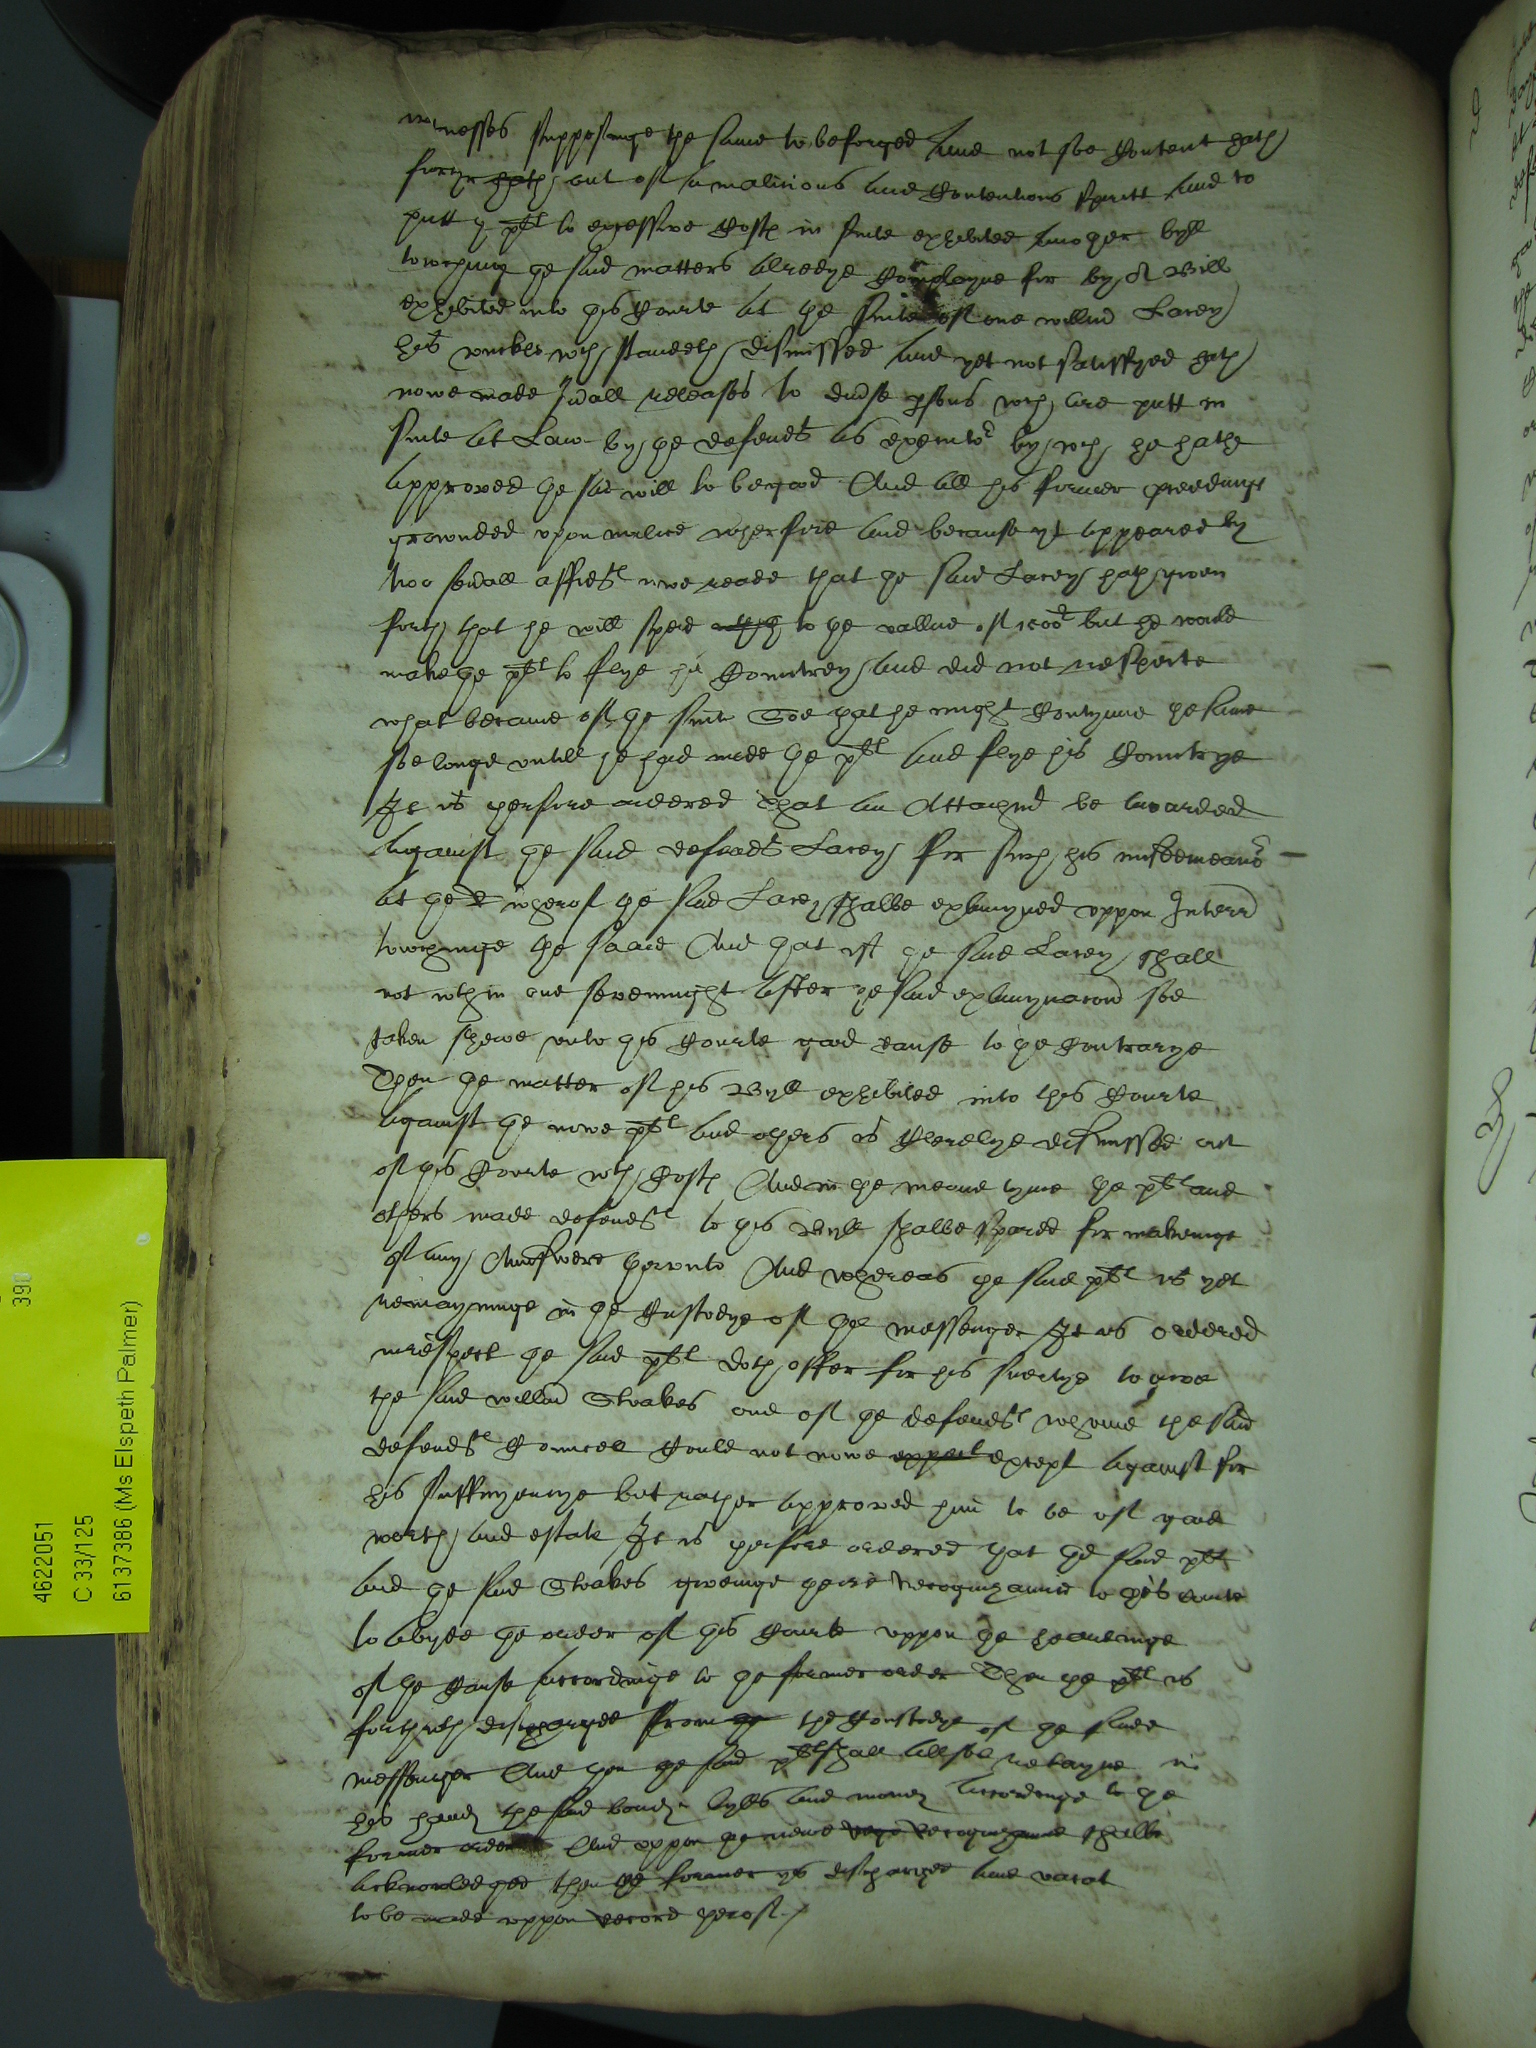 witnesses supposinge the same to be forged and not soe Content hath
further hath out of a malitious and Contentious spiritt and to
putt ye plt to excessive Costs in suite exhibited another byll
towching the said matters alredye Complayne for by A Bill
exhibited into this Courte at the suite of one willm Lacey
his unckle wch standeth dismissed and yet not satisfyed hath
nowe made sevall releases to divse psons wch are putt in
suite at Law by the defendt as executor by wch he hathe
approved the said will to be good And all his former pceedings
grownded upon malice wherfore and because yt appeared by
two sevall affidts nowe reade that the said Lacey hath given
forth that he will spend to the vallue of 1000l but he would
make the plt to flye his Countrey and did not respecte
what became of the suite Soe that he might Contynue the same
soe longe untill he had made the plt and flye his Countrye
It is therfore ordered That an Attachmt be awarded
against the said defendt Lacey for such his misdemeanor
at the wherof the said Lacey shalbe examyned uppon Interr
towchinge the same And that if the said Lacey shall
not wthin one sevennight after the said examynacon soe
taken shewe unto this Courte good cause to the Contrarye
Then the matter of his Byll exhibited into this Courte
against the nowe plt and others is Clerelye dismissed out
of this Courte wth Costs And in the meane tyme the plt and
others made defendts to this Byll shalbe spared for makeinge
of any Answere therunto And whereas the said plt is yet
remayninge in the Custodye of the messenger It is ordered
in respect the said plt doth offer for his suertye to give
the said willm Stoakes one of the defendts whome the said
defendts Councell Could not nowe expect except against for
his suffycyencye but rather approved him to be of good
worth and estate It is therfore ordered that the said plt
and the said Stoakes giveinge theire Recognizance to this Courte
to abyde the order of this Courte uppon the heareinge
of the Cause accordinge to the former order Then the plt is
forthwth dischargde from the the Coustodye of the saide
messenger And then the said plt shall allsoe retayne in
his hands the said bonds bylls and money accordinge to the
former order And uppon the newe Reco Recognizance shalbe
acknowledged then the former ys discharged and vacat
to be made uppon Record therof
4622051
C 33/125
6137386 (Ms Elspeth Palmer)
390